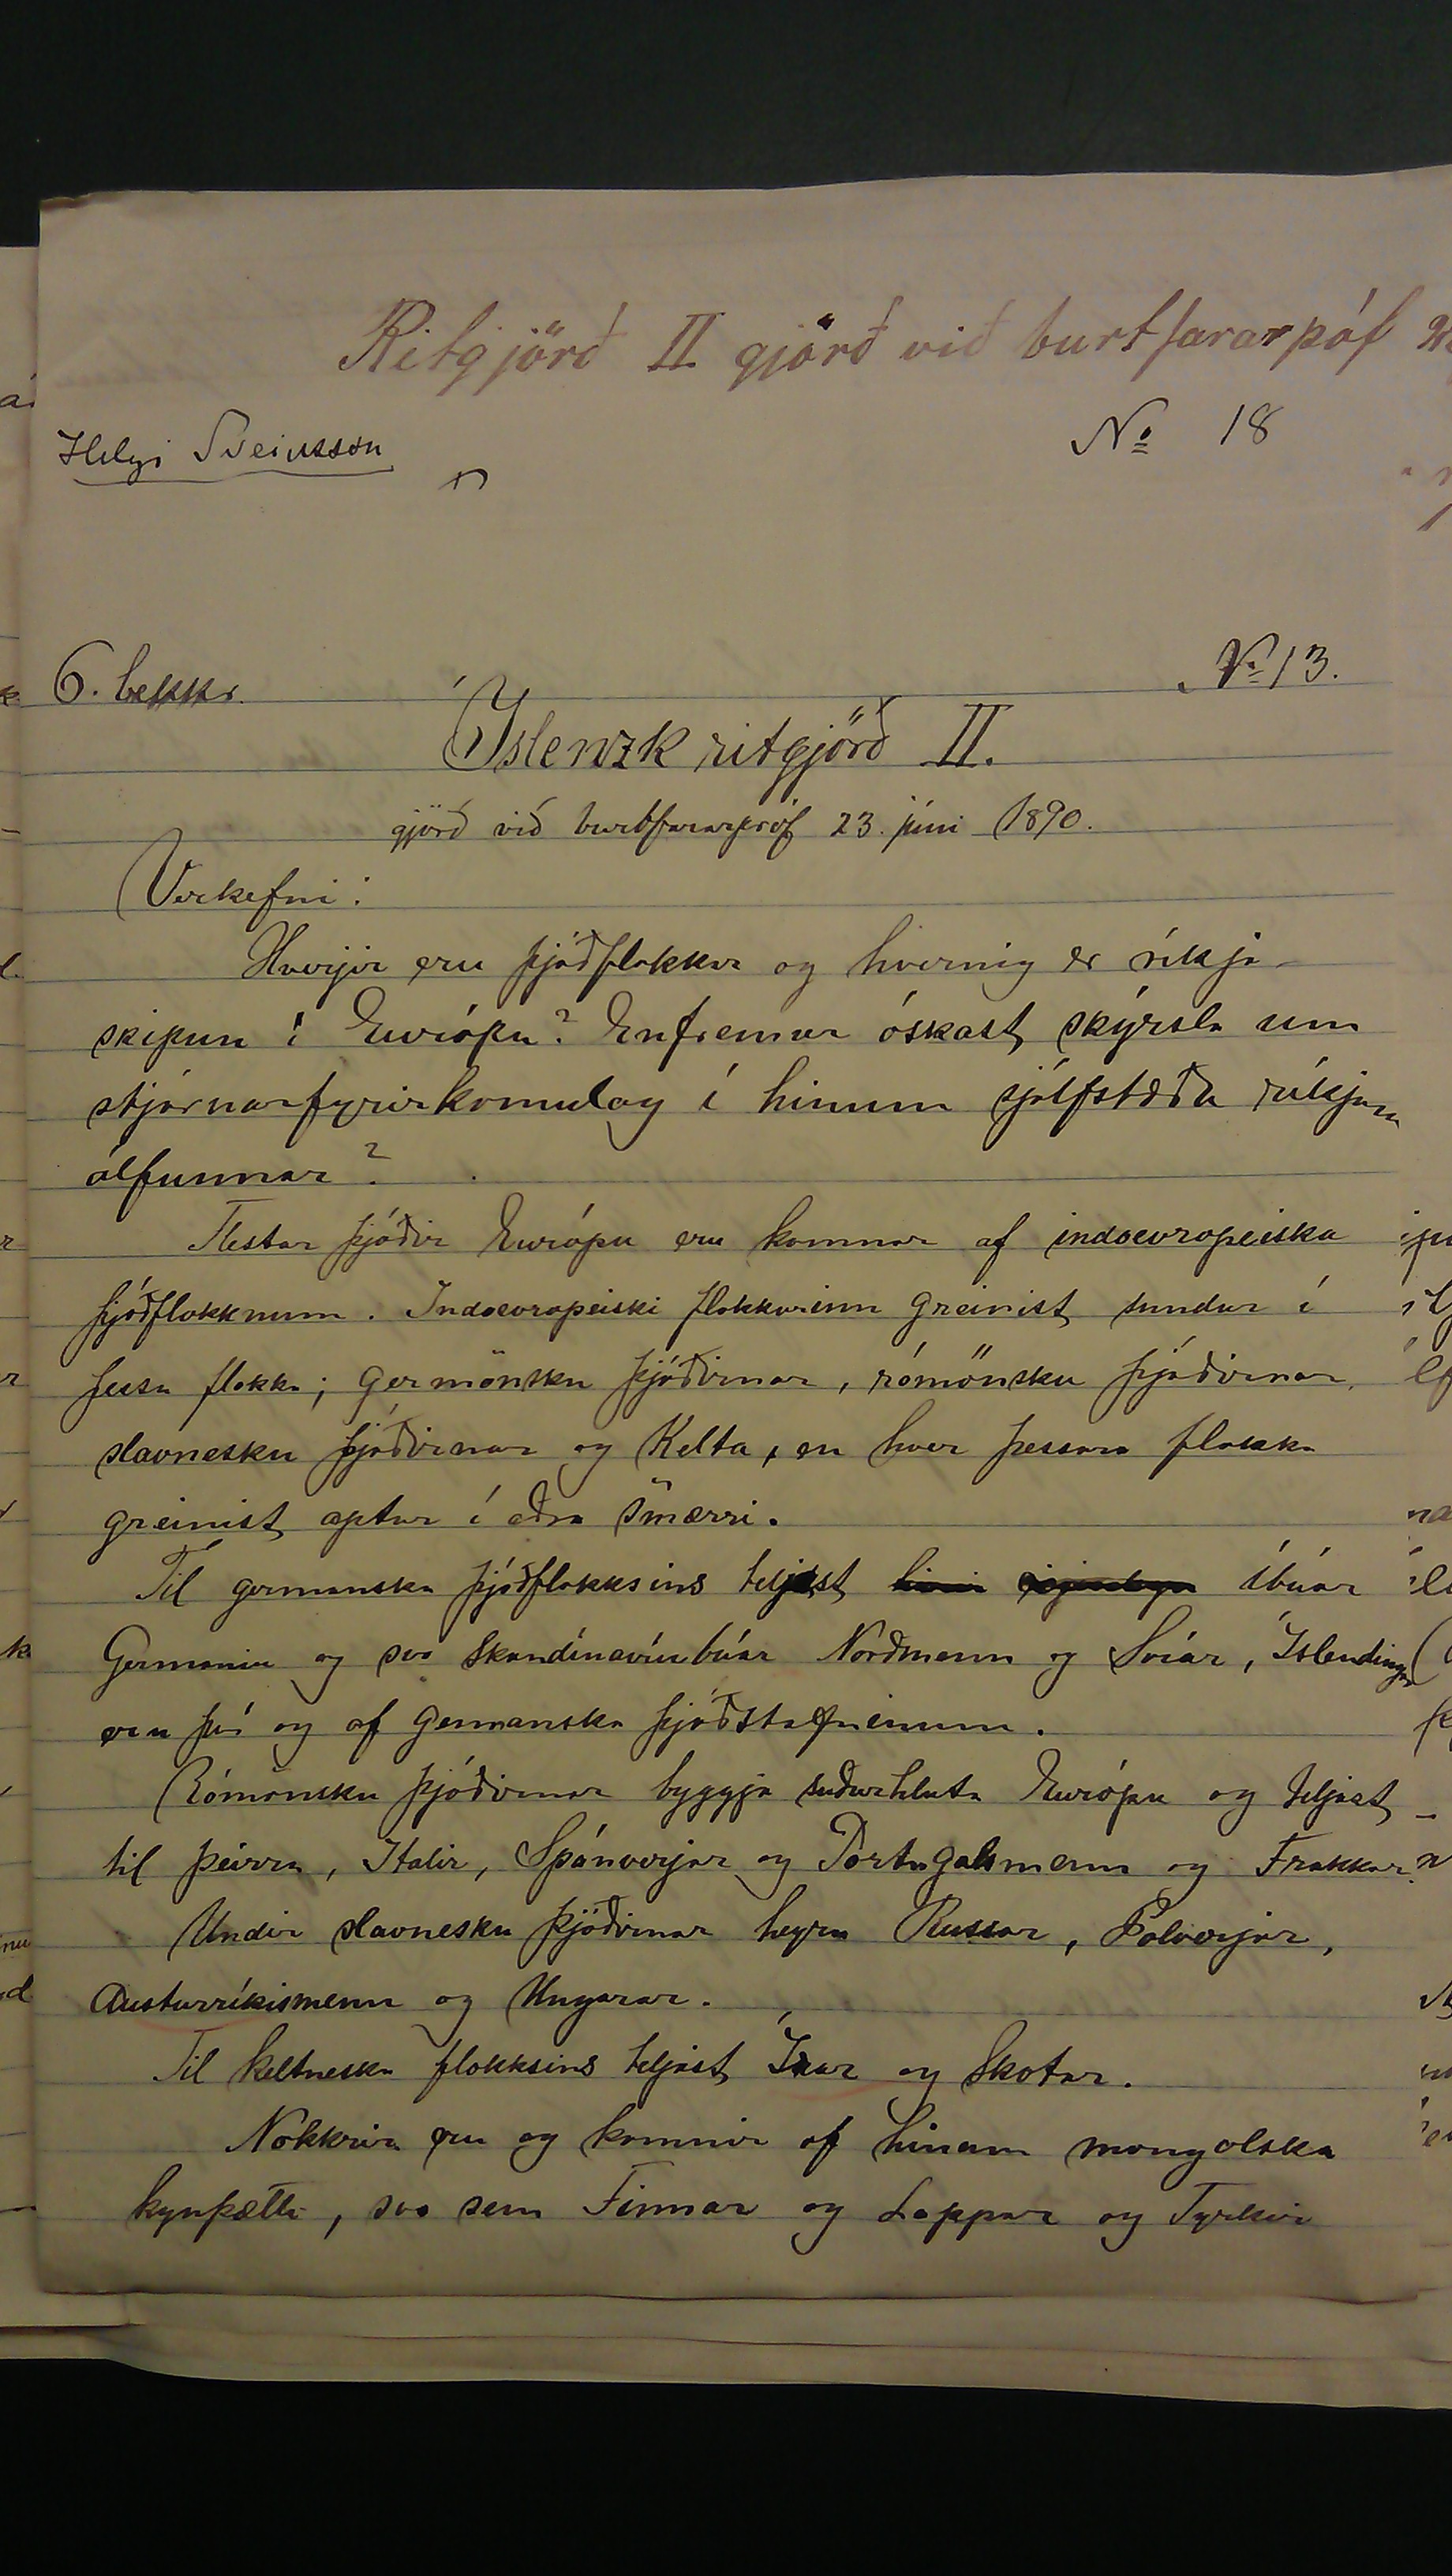 Ritgjörð II gjörð við burtfararpóf
Nº 18
Helgi Sveinsson
6. bekkr.
Nº 13.
Íslenzk ritgjörð II.
gjörð við burtfararpróf 23. júni 1890.
Verkefni:
Hverjir eru þjóðflokkar og hvernig er ríkja-
skipun í Európu? Enfremur óskast skýrsla um
stjórnarfyrirkomulag í hinum sjálfstæðu ríkjum
álfunnar?
Flestar þjóðir Európu eru komnar af indoevropeiska
þjóðflokknum. Indoevropeiski flokkurinn greinist sundur í
þessa flokka; germönsku þjóðirnar, rómönsku þjóðirnar,
slavnesku þjóðirnar og Kelta, en hver þessara flokka
greinist aptur í aðra smærri.
Til germanska þjóðflokksins teljast íbúar
Germaniu og svo Skandínavíubúar Norðmenn og Svíar, Íslendingar
eru þó og af germanska þjóðstofninum.
Rómönsku þjóðirnar byggja suðurhluta Európu og teljast
til þeirra, Italir, Spánverjar og Portugalsmenn og Frakkar.
Undir slavnesku þjóðirnar heyra Russar, Pólverjar,
Austurríkismenn og Ungarar.
Til keltneska flokksins teljast Írar og Skotar.
Nokkrir eru og komnir af hinum mongolska
kynþætti, svo sem Finnar og Lappar og Tyrkir